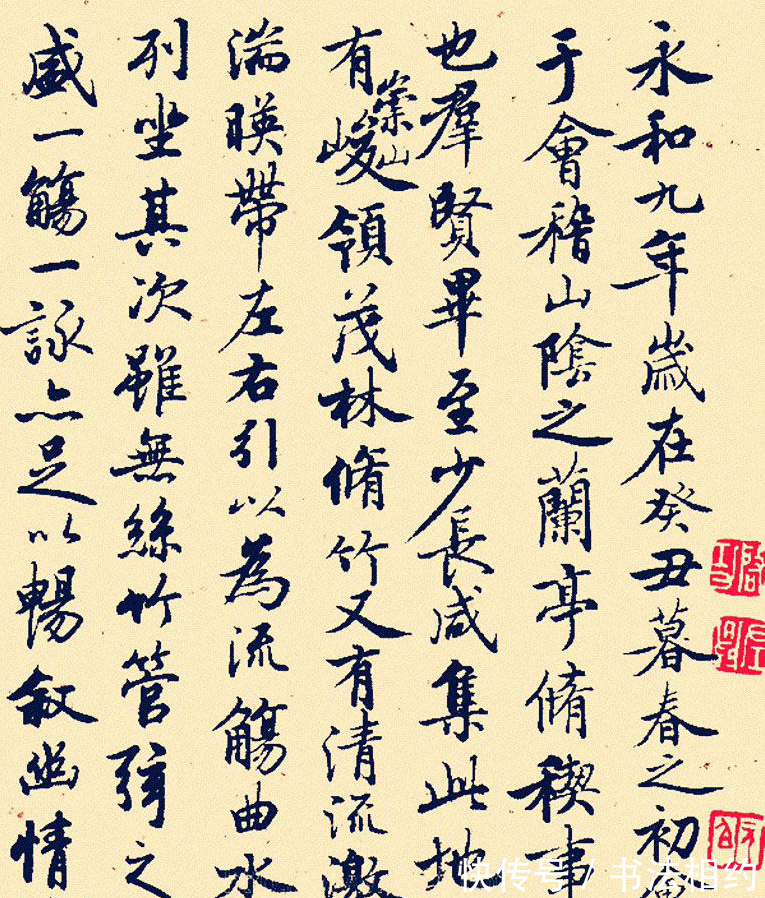 永和九年歲在癸丑暮春之初
于會稽山陰之蘭亭脩稧事
也羣賢畢至少長咸集此地
有崇山峻領茂林脩竹又有清流激
湍暎帶左右引以為流觴曲水
列坐其次雖無絲竹管弦之
盛一觴一詠亦足以暢敘幽情
快传号 / 书法相约